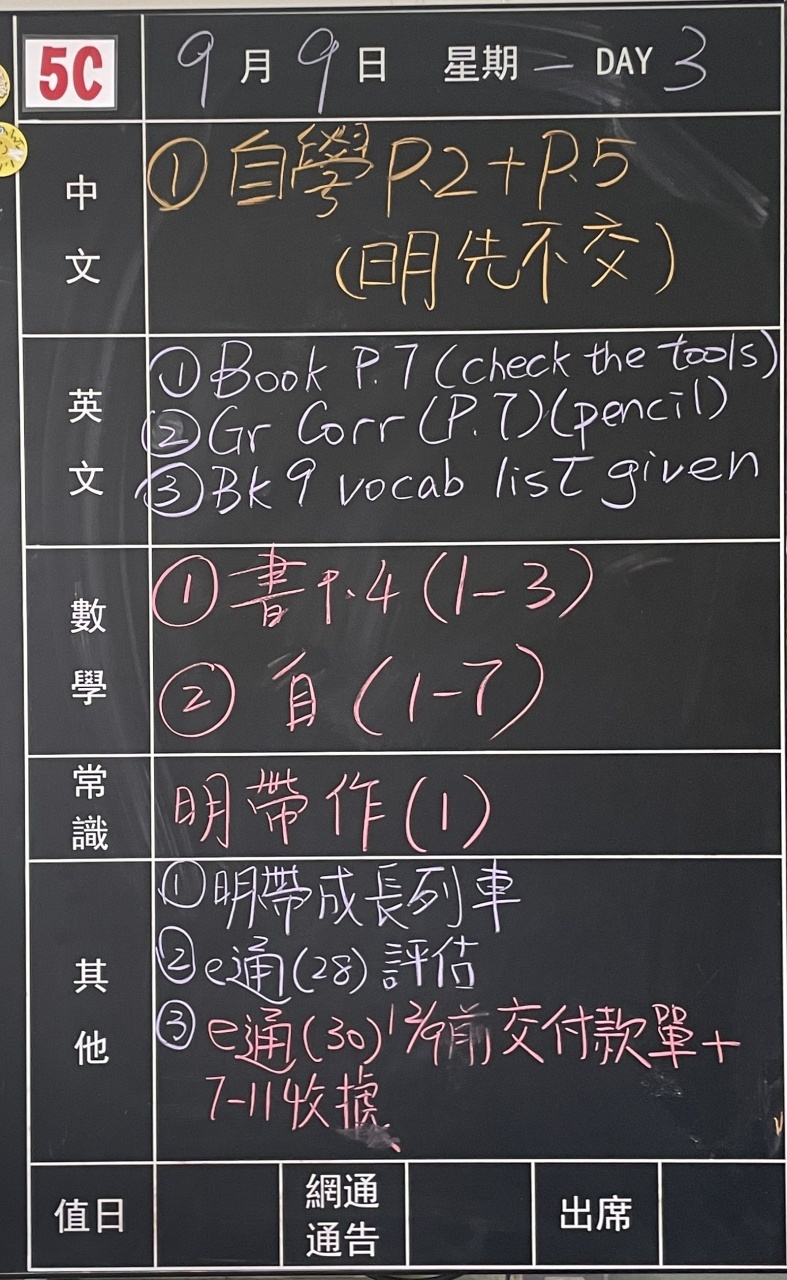 5C 9月9日 星期一 DAY 3
中文
① 自學 P.2+P.5
(明先不交)
英文
① Book P.7 (check the tools)
② Gr Corr (P.7)(pencil)
③ Bk 9 vocab list given
數學
① 書P.4 (1-3)
② 自 (1-7)
常識
明帶作(1)
其他
① 明帶成長列車
② e通(28) 評估
③ e通(30) 12/9前交付款單+
7-11收據
值日 網通通告 出席